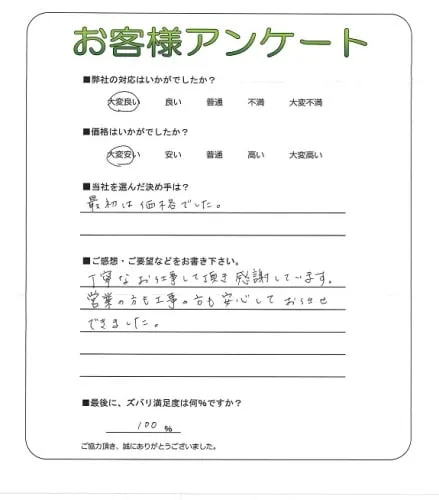 お客様アンケート
■弊社の対応はいかがでしたか?
大変良い 良い 普通 不満 大変不満
■価格はいかがでしたか?
大変安い 安い 普通 高い 大変高い
■当社を選んだ決め手は?
最初は価格でした。
■ご感想・ご要望などをお書き下さい。
丁寧なお仕事して頂き感謝しています。
営業の方も工事の方も安心してお任せ
できました。
■最後に、ズバリ満足度は何%ですか?
100 %
ご協力頂き、誠にありがとうございました。